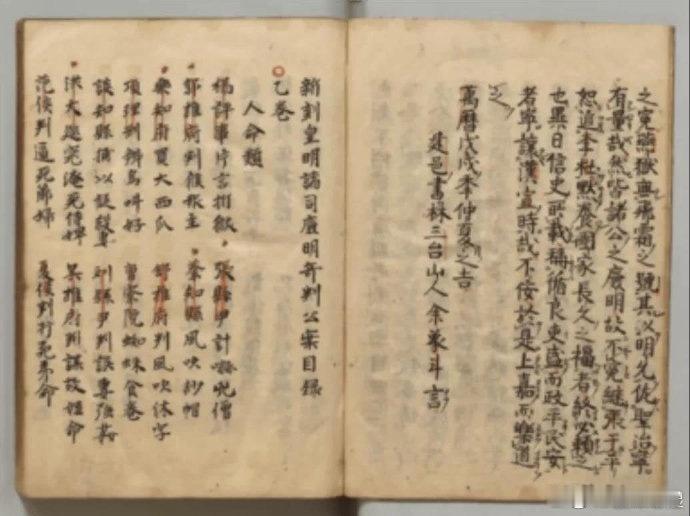 之冤獄無飛霜之號其以明允佐聖治寧
有量哉然皆諸公之廉明故不冤継張于平
恕道默養國家長久之福者終必頼之
也異日信史所載稱循良吏盛而政平民安
者寧讓漢宣時哉不佞於是上嘉而樂道
之
萬曆戊戌季仲夏之吉
建邑書林三台山人余象斗言
新刻皇明諸司廉明奇判公案目録
乙卷
人命類
楊評事片言折獄 張縣尹計嚇兇僧
郭推府判猴報主 蔡知縣風吹紗帽
樂知府買大西瓜 舒推府判風吹休字
項理刑辨鳥叫好 曹察院蜘蛛食卷
談知縣捕以疑殺妻 刘縣尹判誤妻強姦
洪大巡究淹死侍婢 吳推府判謀故姪命
范侯判逼死弟婦 夏侯判打死弟命